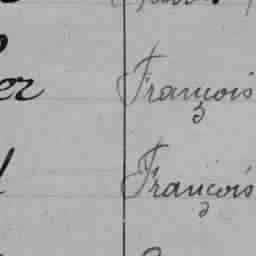 er François
François